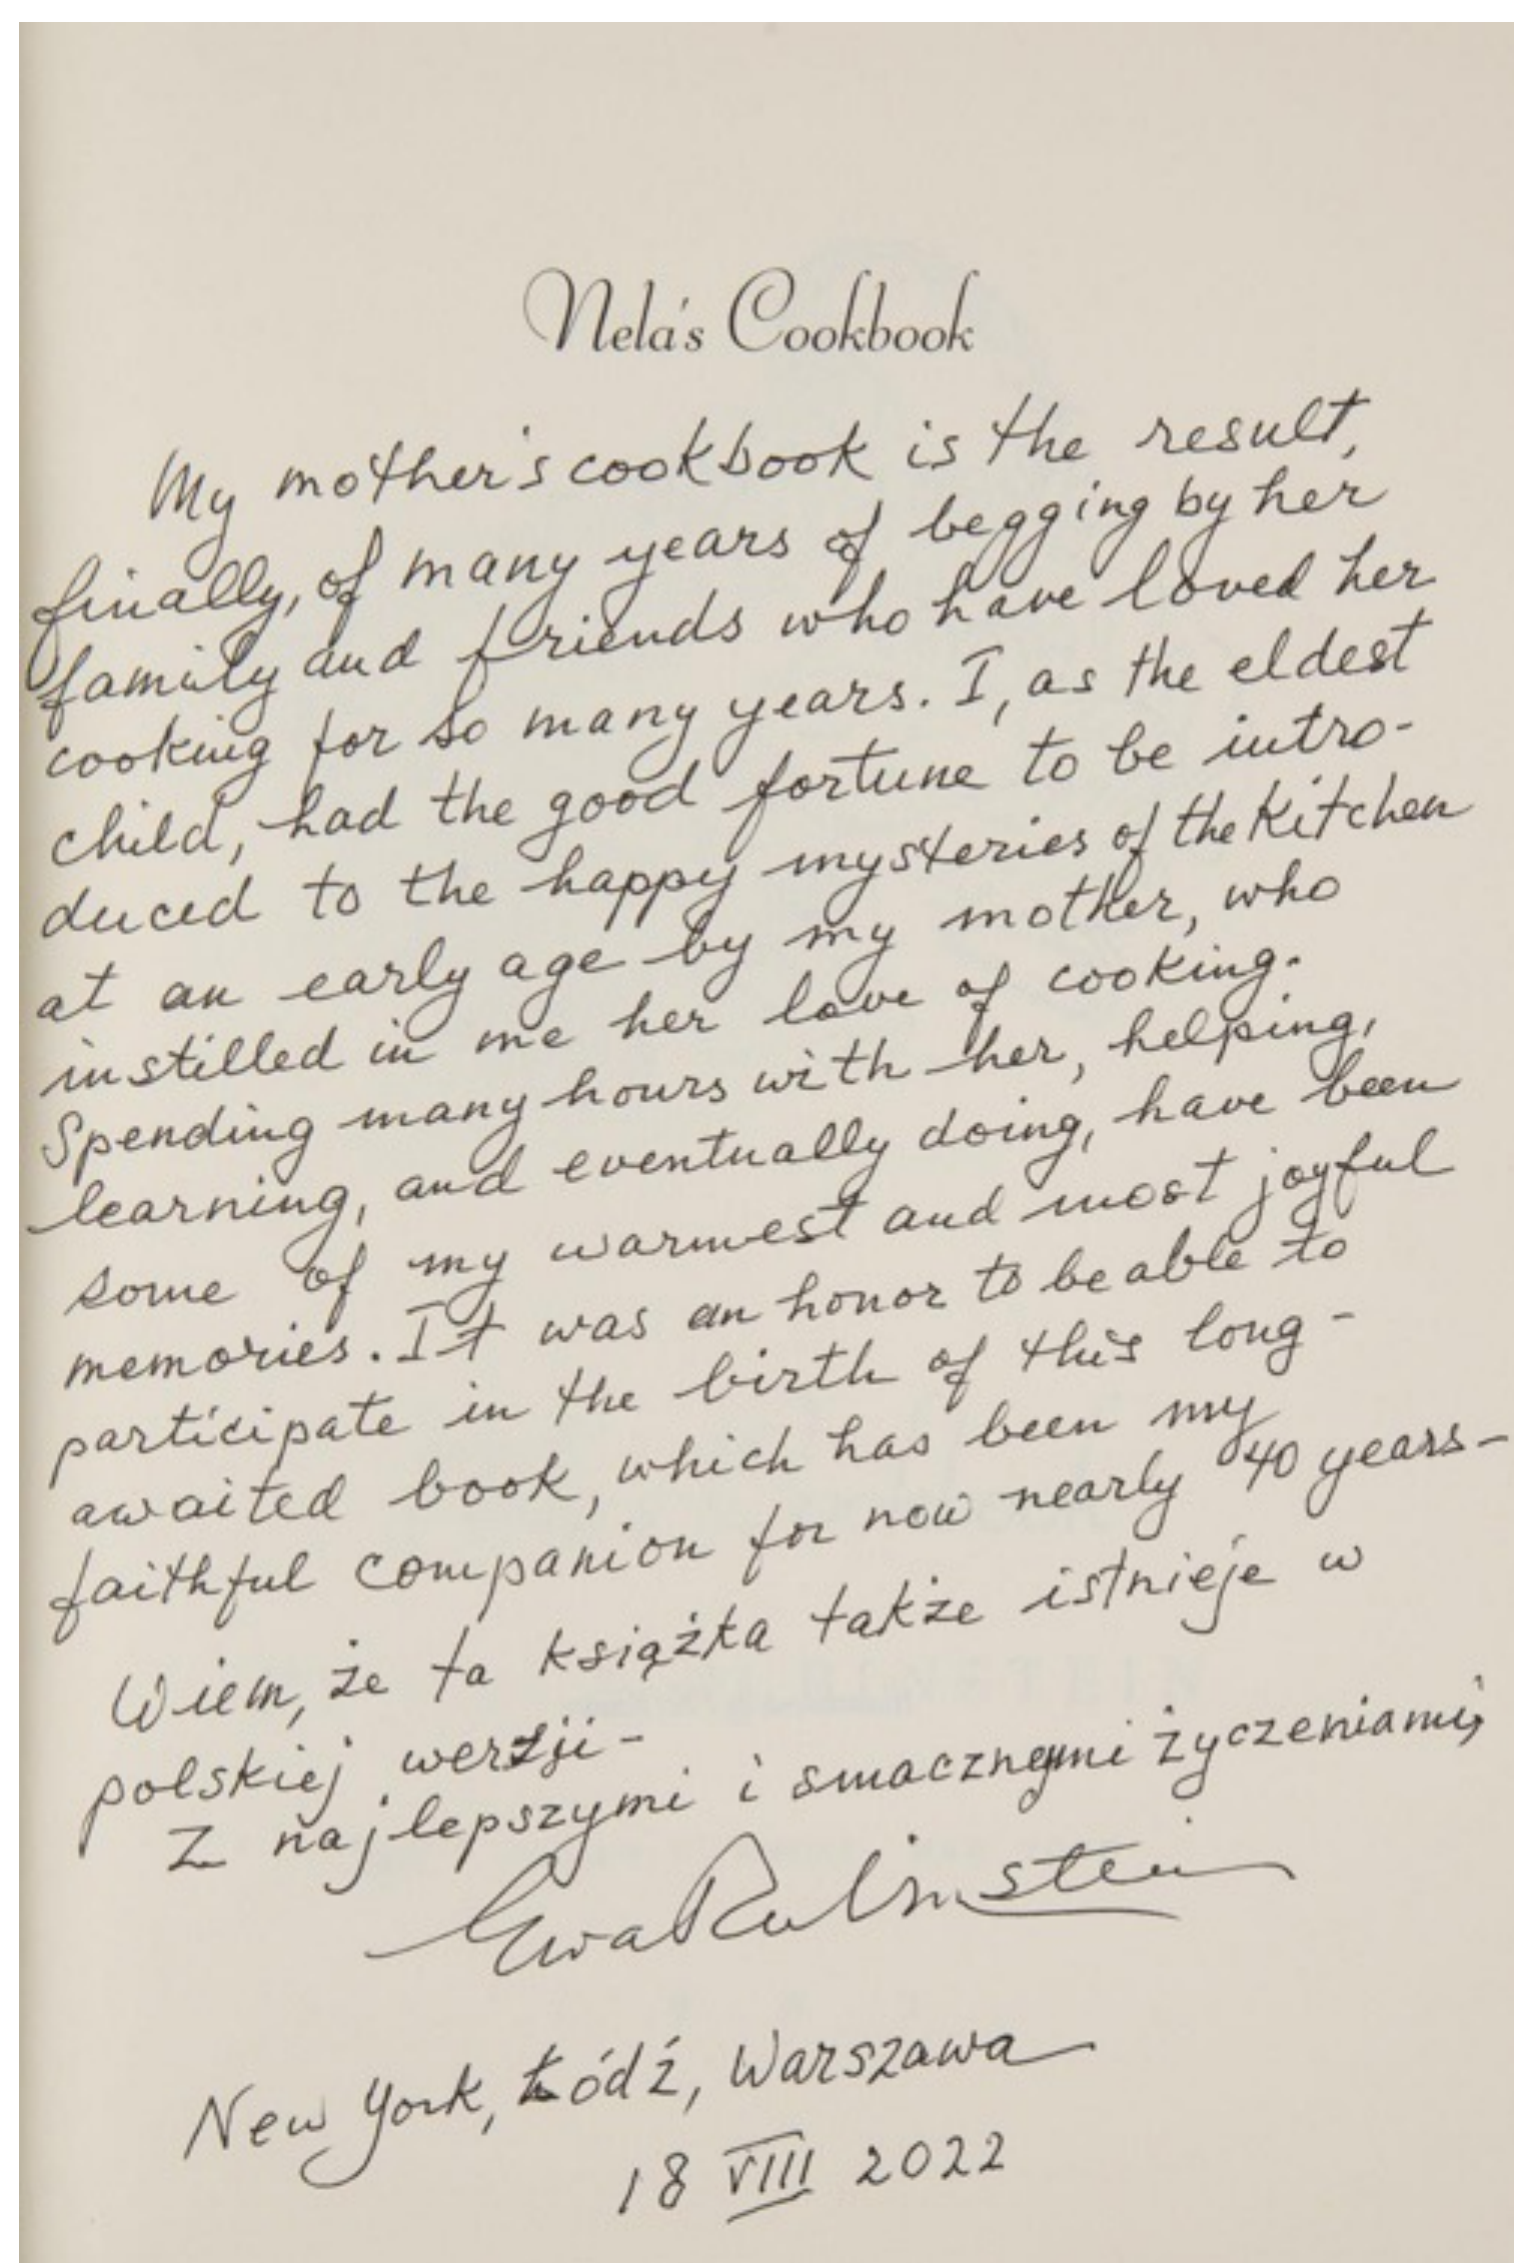 Nela's Cookbook
My mother's cookbook is the result,
finally, of many years of begging by her
family and friends who have loved her
cooking for so many years. I, as the eldest
child, had the good fortune to be intro-
duced to the happy mysteries of the kitchen
at an early age by my mother, who
instilled in me her love of cooking.
Spending many hours with her, helping,
learning, and eventually doing, have been
some of my warmest and most joyful
memories. It was an honor to be able to
participate in the birth of this long-
awaited book, which has been my
faithful companion for now nearly 40 years-
Wiem, że ta książka także istnieje w
polskiej wersji-
Z najlepszymi i smacznymi życzeniami,
Ewa Rubinstein
New York, Łódź, Warszawa
18 VIII 2022